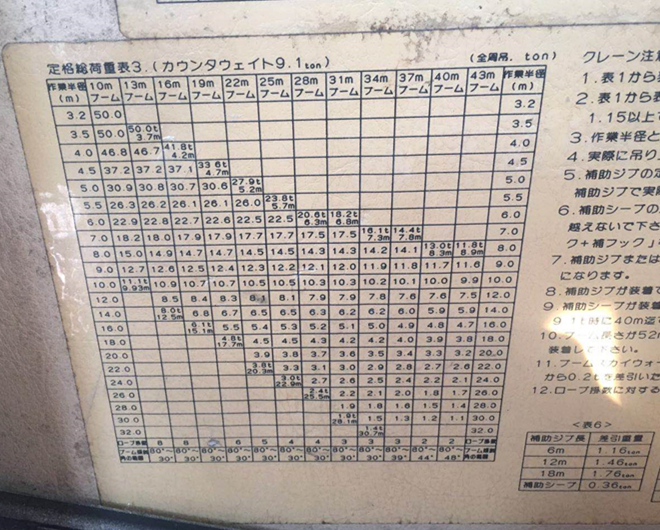 定格総荷重表3.(カウンタウェイト9.1ton)
(全周吊. ton)
作業半径(m) 10mブーム 13mブーム 16mブーム 19mブーム 22mブーム 25mブーム 28mブーム 31mブーム 34mブーム 37mブーム 40mブーム 43mブーム 作業半径(m)
3.2 50.0 3.2
3.5 50.0 50.0t 3.7m 3.5
4.0 46.8 46.7 41.8t 4.2m 4.0
4.5 37.2 37.2 37.1 33.6t 4.7m 4.5
5.0 30.9 30.8 30.7 30.6 27.9t 5.2m 5.0
5.5 26.3 26.2 26.1 26.1 26.0 23.8t 5.7m 5.5
6.0 22.9 22.8 22.7 22.6 22.5 22.5 20.6t 6.3m 18.2t 6.8m 6.0
7.0 18.2 18.0 17.9 17.9 17.7 17.7 17.7 17.5 17.5 16.1t 7.3m 14.4t 7.8m 7.0
8.0 15.0 14.9 14.7 14.7 14.5 14.5 14.3 14.3 14.2 14.1 13.0t 8.3m 11.8t 8.9m 8.0
9.0 12.7 12.6 12.5 12.4 12.3 12.2 12.1 12.0 11.9 11.8 11.7 11.6 9.0
10.0 11.1t 9.93m 10.9 10.7 10.7 10.5 10.5 10.3 10.3 10.2 10.1 10.0 9.9 10.0
12.0 8.5 8.4 8.3 8.1 8.1 7.9 7.9 7.8 7.6 7.6 7.5 12.0
14.0 8.0t 12.5m 6.8 6.7 6.5 6.5 6.3 6.2 6.2 6.0 5.9 5.9 14.0
16.0 6.1t 15.1m 5.5 5.4 5.3 5.2 5.1 5.0 4.9 4.8 4.7 16.0
18.0 4.8t 17.7m 4.5 4.4 4.3 4.2 4.2 4.0 3.9 3.8 18.0
20.0 3.9 3.8 3.7 3.6 3.5 3.4 3.3 3.2 20.0
22.0 3.8t 20.3m 3.3 3.1 3.0 2.9 2.8 2.7 2.6 22.0
24.0 3.0t 22.9m 2.7 2.6 2.5 2.4 2.2 2.1 24.0
26.0 2.4t 25.5m 2.2 2.1 2.0 1.8 1.7 26.0
28.0 1.9 1.8 1.6 1.5 1.4 28.0
30.0 1.9t 28.1m 1.5 1.3 1.2 1.1 30.0
32.0 1.4t 30.7m 32.0
ロープ掛数 8 8 6 5 4 4 3 3 3 2 2
80°~30° 80°~30° 80°~30° 80°~30° 80°~30° 80°~30° 80°~30° 80°~30° 80°~39° 80°~44° 80°~48°
クレーン注意
1.表1から
2.表1から表
1.15以上で
3.作業半径と
4.実際に吊り
5.補助ジブの定
補助ジブで実際
6.補助シーブの
越えないで下さ
ク+補フック」
7.補助ジブまたは
になります。
8.補助ジブが装着で
9.補助シーブが装着
9.1t時に40m迄で
装着して下さい。
から0.2tを差引いた
12.ロープ掛数に対する
<表6>
補助ジブ長 差引重量
6m 1.16ton
12m 1.46ton
18m 1.76ton
補助シーブ 0.36ton